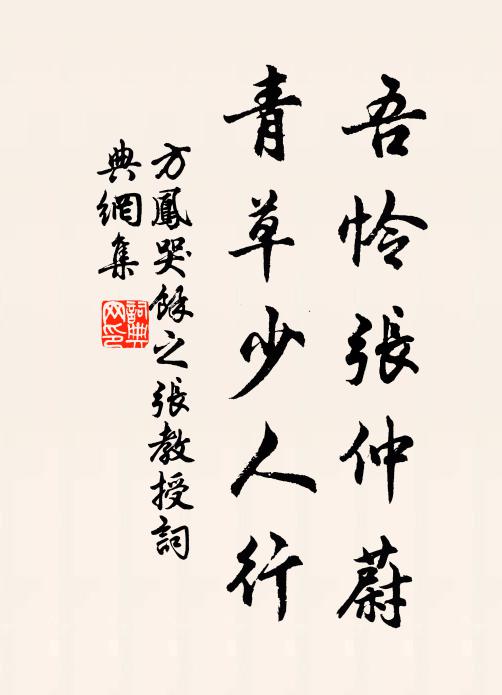 吾怜張仲蔚
青草少人行
方鳳哭餘之張教授詞
典網集
詞典
网印